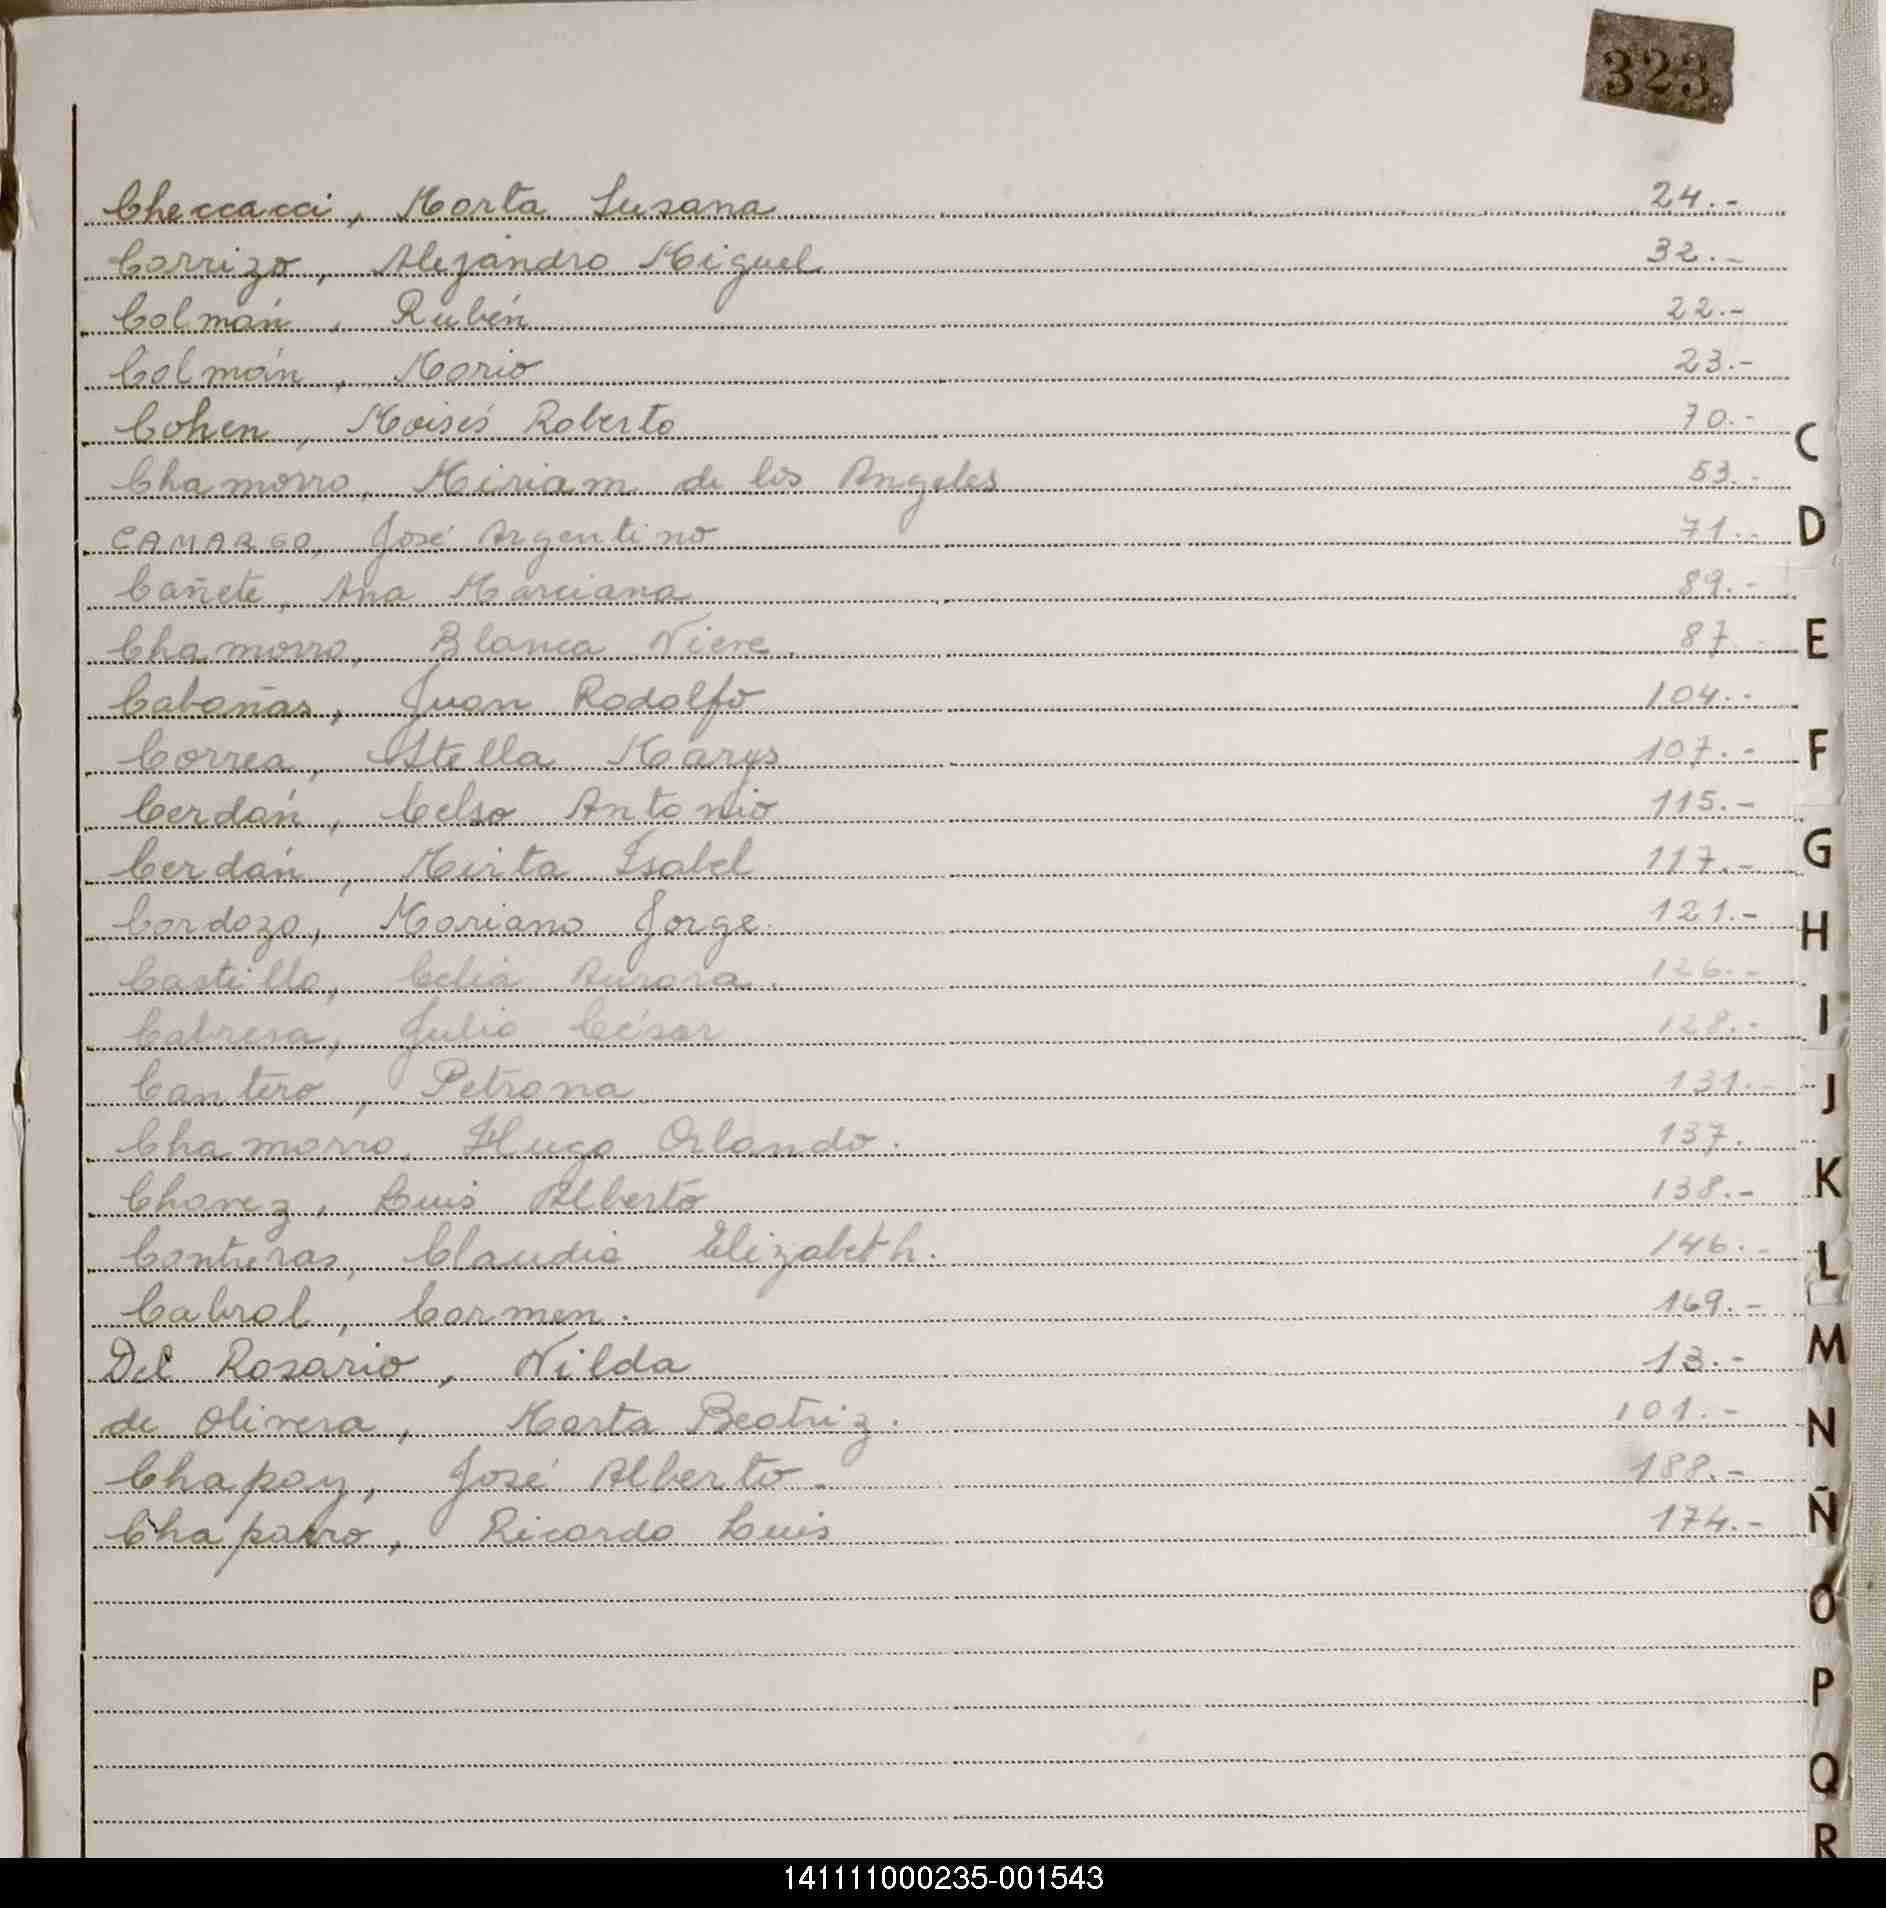 323
Checcacci, Marta Susana 24.-
Carrizo, Alejandro Miguel 32.-
Colmán, Rubén 22.-
Colmán, Mario 23.-
Cohen, Moisés Roberto 70.-
Chamorro, Miriam de los Angeles 53.-
CAMARGO, José Argentino 71.-
Cañete, Ana Marciana 89.-
Chamorro, Blanca Nieve. 87.-
Cabañas, Juan Rodolfo 104.-
Correa, Stella Marys 107.-
Cerdán, Celso Antonio 115.-
Cerdán, Mirta Isabel 117.-
Cardozo, Mariano Jorge. 121.-
Castillo, Celia Aurora. 126.-
Cabrera, Julio César 128.-
Cantero, Petrona 131.-
Chamorro, Hugo Orlando. 137.-
Chavez, Luis Alberto 138.-
Contreras, Claudia Elizabeth. 146.-
Cabral, Carmen. 169.-
Del Rosario, Nilda 13.-
de Olivera, Marta Beatriz. 101.-
Chapay, José Alberto. 188.-
Chaparro, Ricardo Luis 174.-
C
D
E
F
G
H
I
J
K
L
M
N
Ñ
O
P
Q
R
141111000235-001543